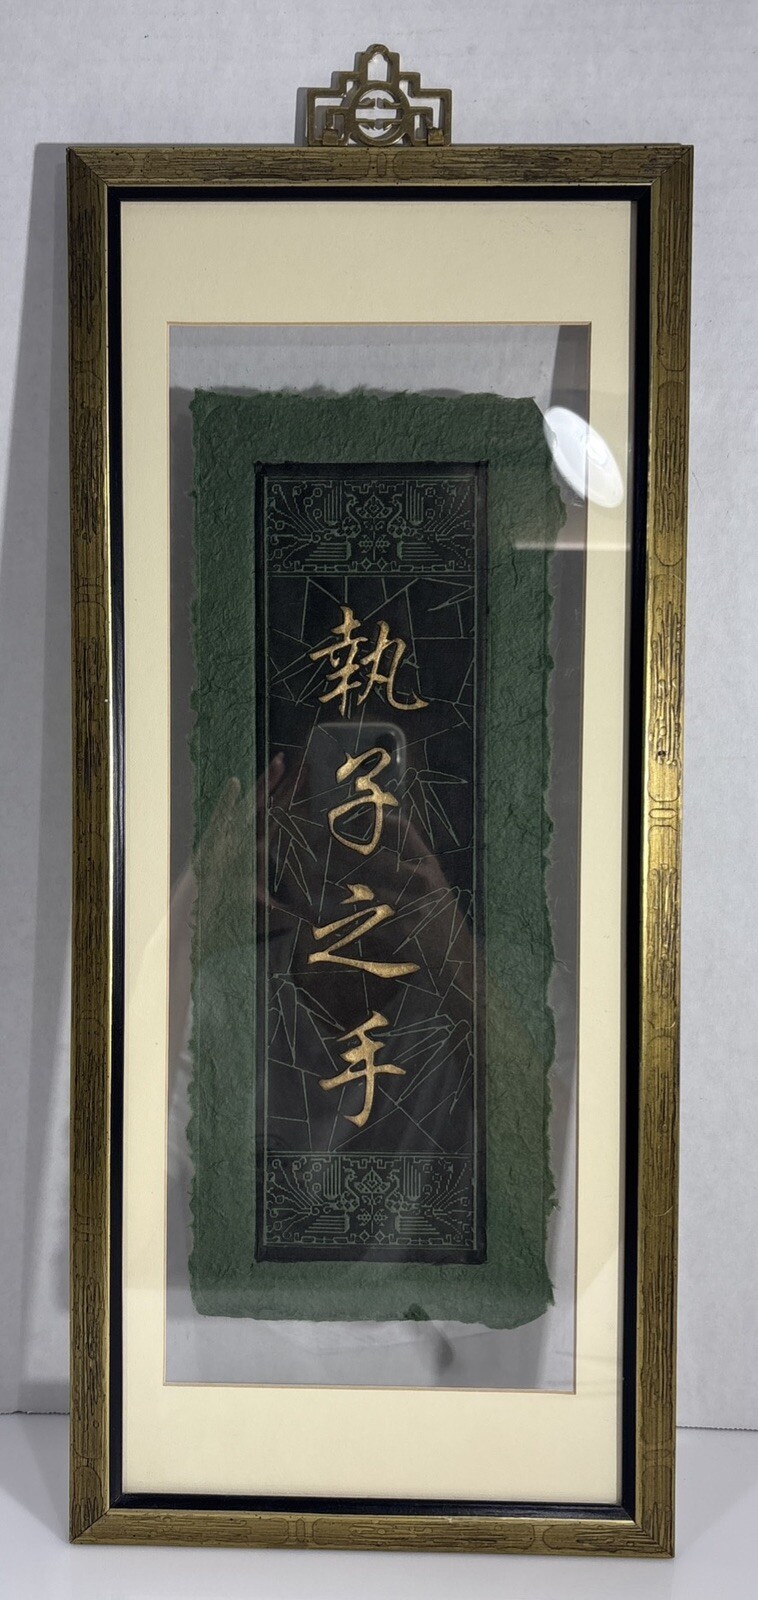 執子之手